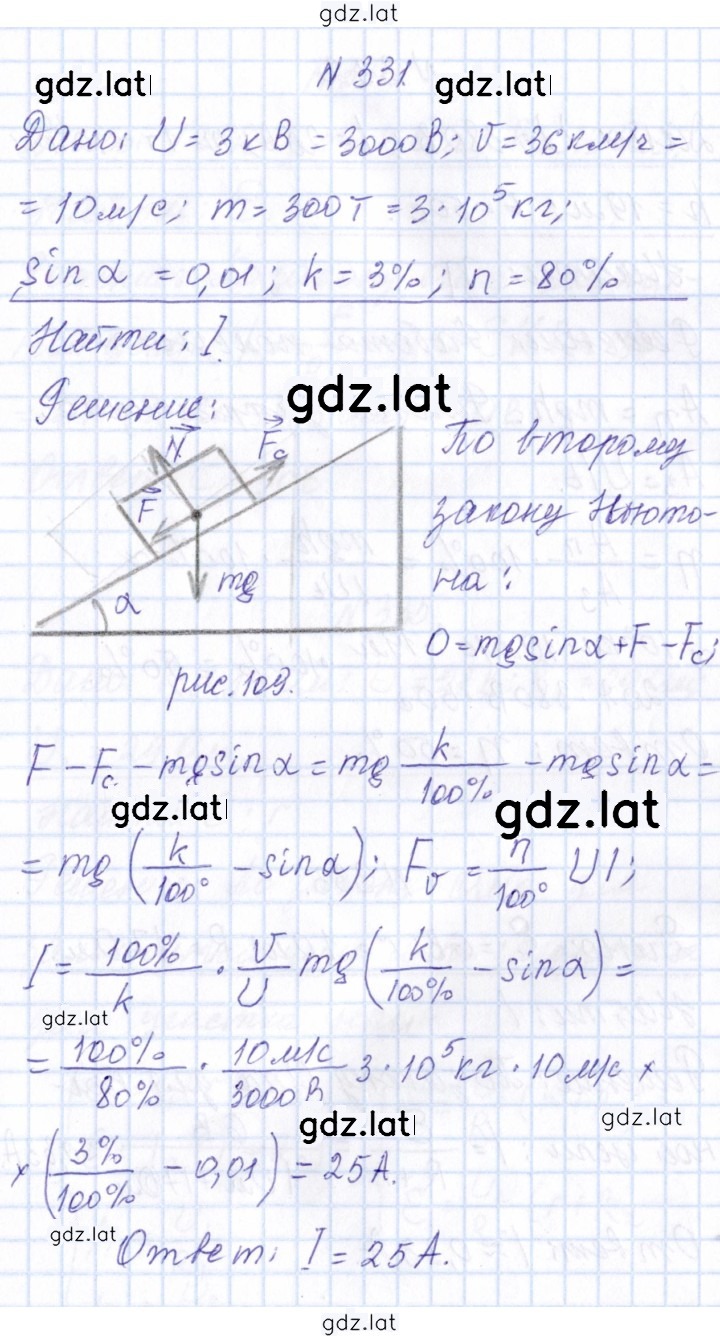 gdz.lat
N 331
gdz.lat gdz.lat
Дано: U = 3 кВ = 3000В; v = 36 км/ч =
= 10 м/с; m = 300 т = 3·10⁵ кг;
sin α = 0,01; k = 3%; n = 80%
Найти: I.
Решение: gdz.lat
N Fc
F
mg
α
рис. 109.
По второму
закону Ньюто-
на:
0 = mg sin α + F - Fc;
F - Fc - mg sin α = mg k/100% - mg sin α =
gdz.lat gdz.lat
= mg (k/100° - sin α); Fv = n/100° UI;
I = 100%/k · v/U mg (k/100% - sin α) =
gdz.lat
= 100%/80% · 10м/с/3000В 3·10⁵ кг · 10 м/с ×
gdz.lat gdz.lat
× (3%/100% - 0,01) = 25А.
gdz.lat
Ответ: I = 25А.
gdz.lat